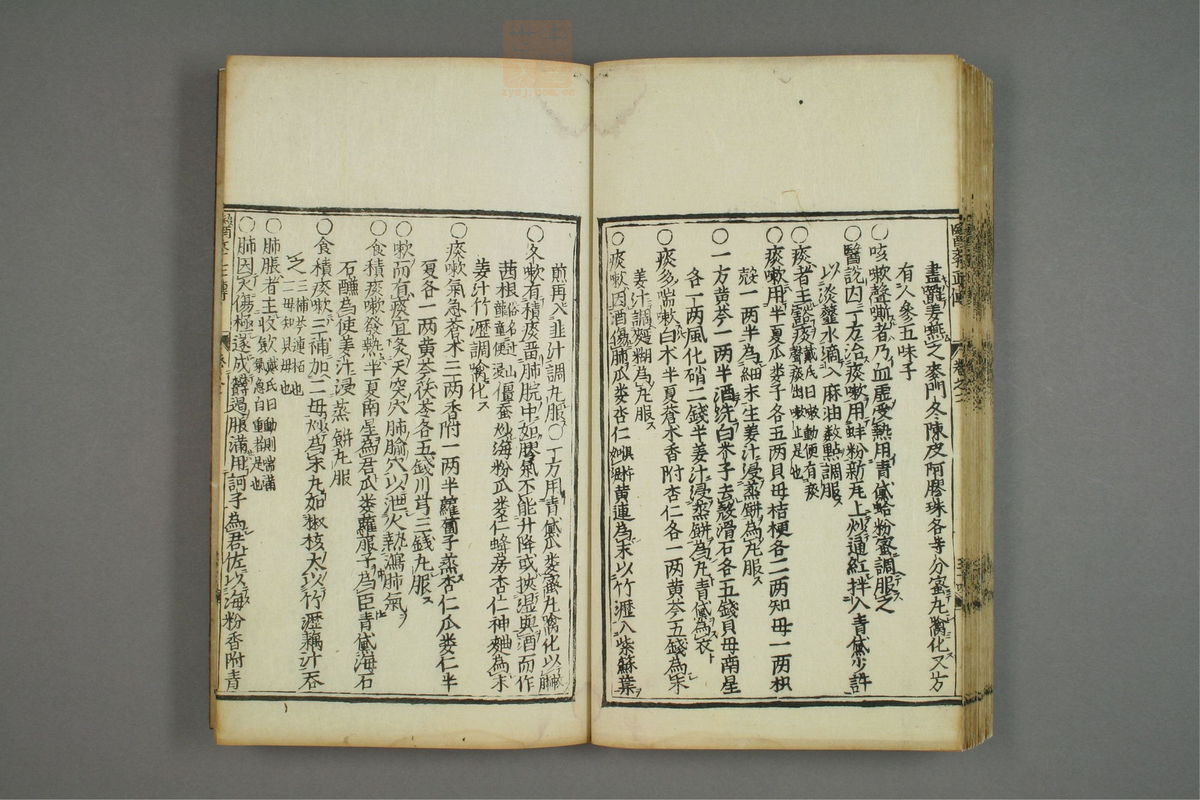 盡爵姜燕之麥門冬陳皮阿膠珠各等分蜜丸噙化又方
有人參五味子
○咳嗽聲嘶者乃血虛受熱用青黛蛤粉蜜調服之
○醫說因一方治痰嗽用蚌粉新瓦上炒通紅拌入青黛少許
以淡虀水滴入麻油數點調服
○痰者主豁痰戴氏曰嗽動便有痰聲痰出嗽止是也
○痰嗽用半夏瓜蔞子各五兩貝母桔梗各二兩知母一兩枳
殼一兩半為細末生姜汁浸蒸餅為丸服
○一方黄芩一兩半酒洗白芥子去殼滑石各五錢貝母南星
各一兩風化硝二錢半姜汁浸蒸餅為丸青黛為衣
○痰多喘嗽白术半夏蒼术香附杏仁各一兩黄芩五錢為末
姜汁調麵糊為丸服
○痰嗽因酒傷肺瓜蔞杏仁俱杵如泥黄連為末以竹瀝入紫蘇葉
煎再入韭汁調丸服○一方用青黛瓜蔞蜜丸噙化以救肺
○久嗽有積痰畱肺脘中如膠氣不能升降或挾湿與酒而作
茜根俗名過山龍童便浸僵蚕炒海粉瓜蔞仁蜂房杏仁神麯為末
姜汁竹瀝調噙化
○痰嗽氣急蒼术三兩香附一兩半蘿蔔子蒸杏仁瓜蔞仁半
夏各一兩黄芩茯苓各五錢川芎三錢丸服
○嗽而有痰宜灸天突穴肺腧穴以泄火熱瀉肺氣
○食積痰嗽發熱半夏南星為君瓜蔞蘿服子為臣青黛海石
石醶為使姜汁浸蒸餅丸服
○食積痰嗽三補加二母炒為末丸如椒核大以竹瀝藕汁吞
之三補芩連栢也二母知貝母也
○肺脹者主收歛戴氏曰動則喘滿氣急息重者是也
○肺因火傷極遂成鬱遏脹滿用訶子為君佐以海粉香附青